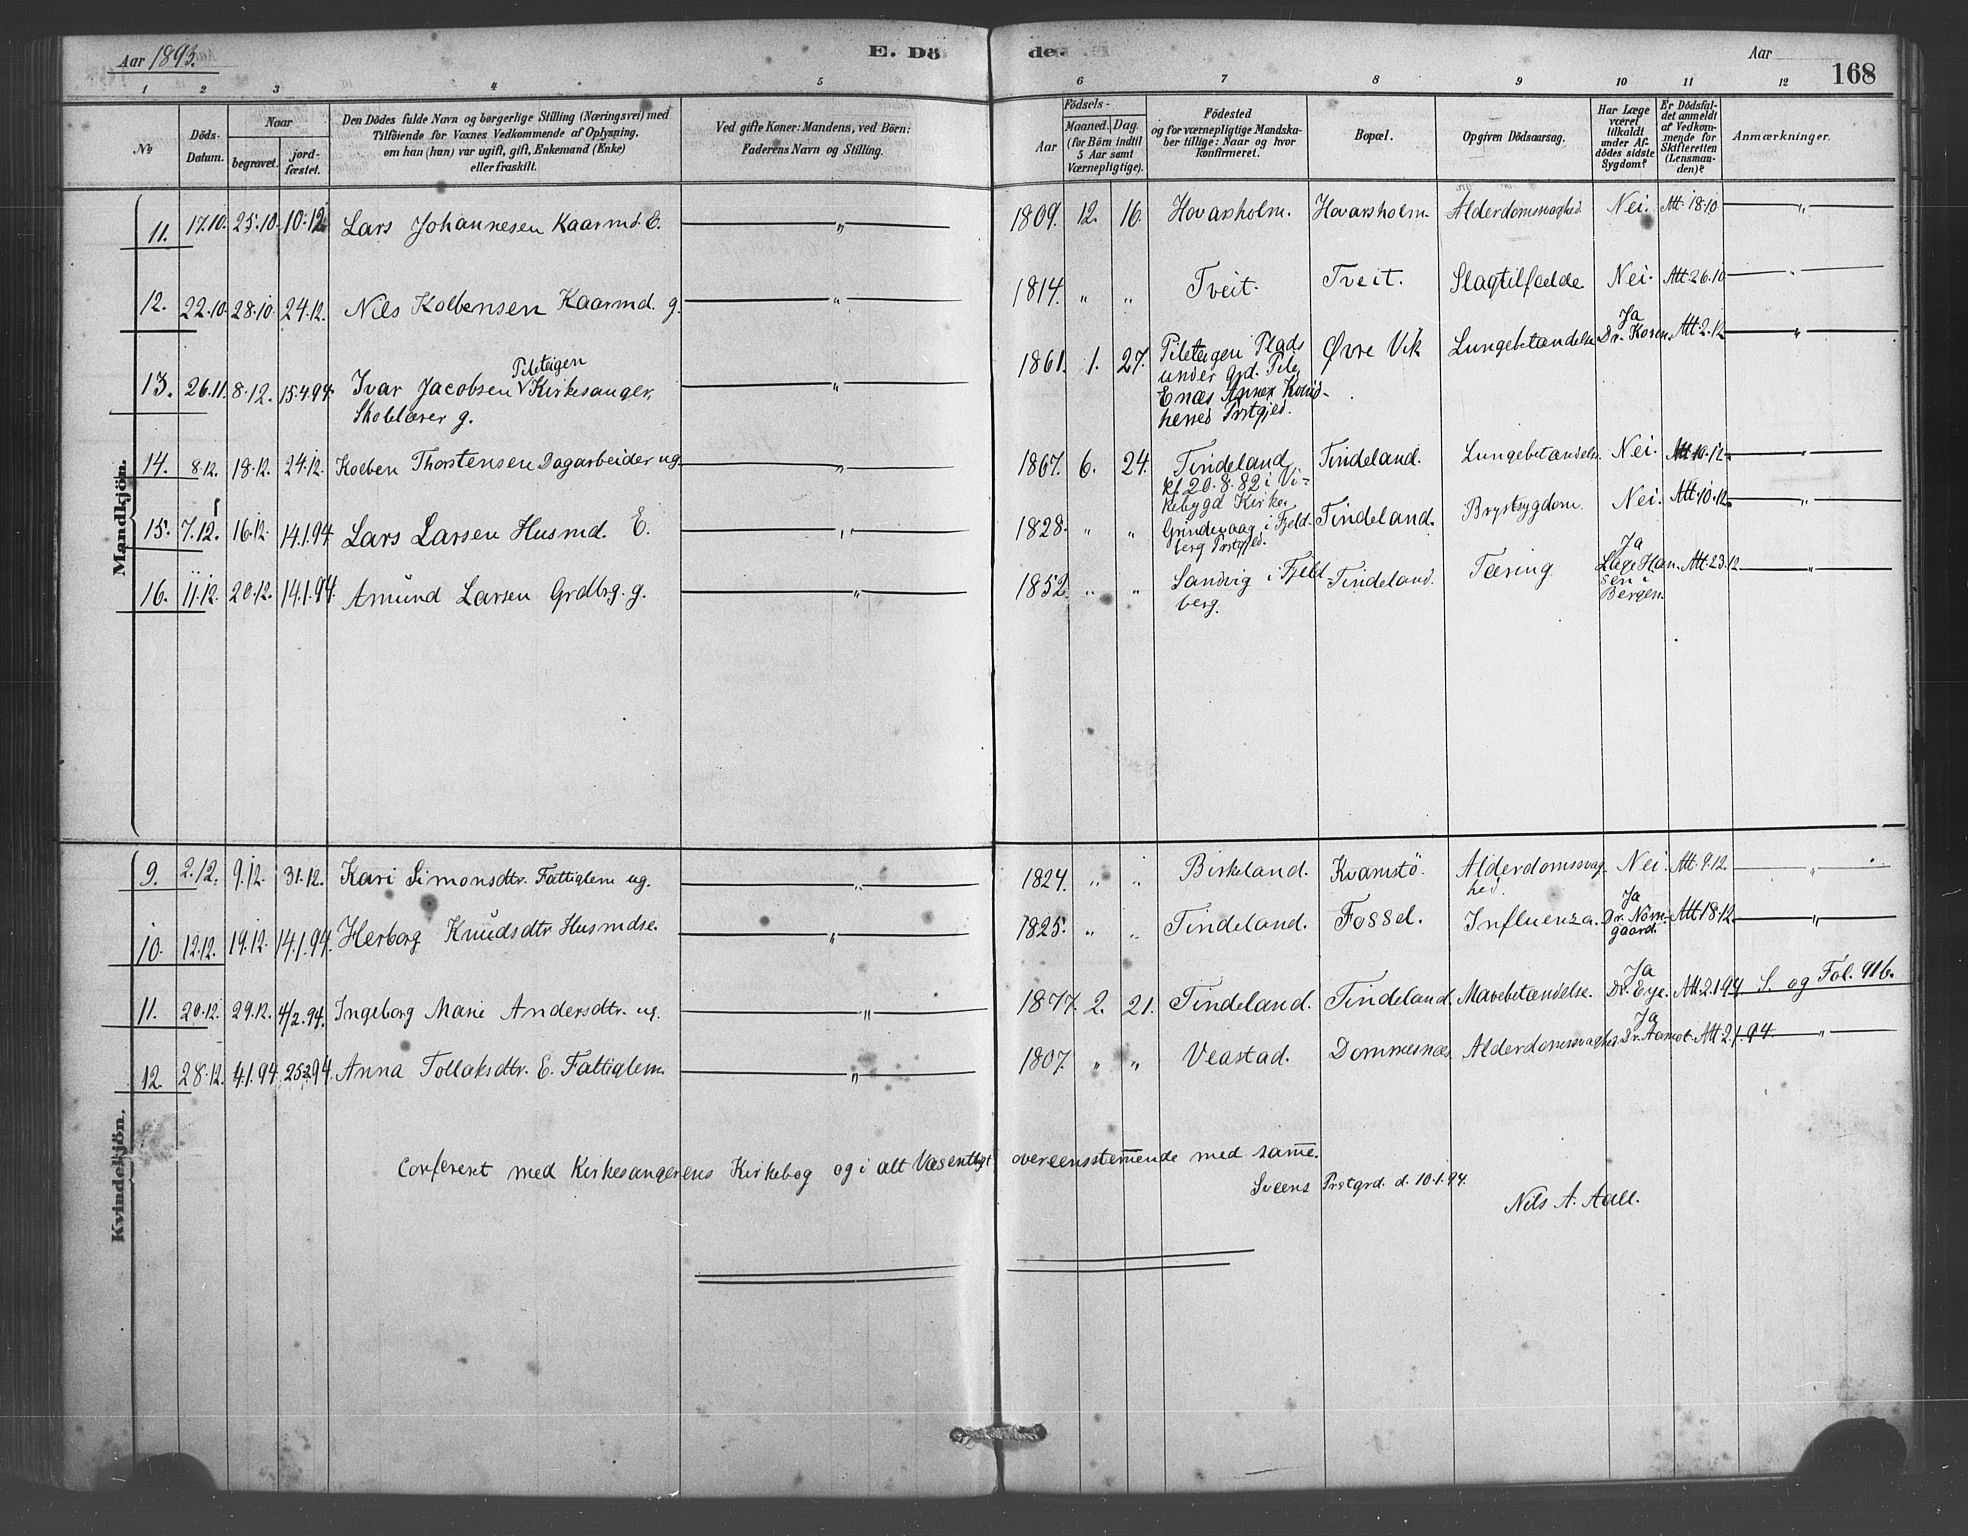 Aar 1893. E. Dö de. Aar 168
1 2 3 4 5 6 7 8 9 10 11 12
No
Döds-Datum.
Naar
begravet. jordfæstet.
Den Dödes fulde Navn og borgerlige Stilling (Næringsvei) med
Tilföiende for Voxnes Vedkommende af Oplysning,
om han (hun) var ugift, gift, Enkemand (Enke)
eller fraskilt.
Ved gifte Koner: Mandens, ved Börn:
Faderens Navn og Stilling.
Födsels-
Aar
Maaned. Dag.
(for Börn indtil
5 Aar samt
Værnepligtige).
Födested
og for værnepligtige Mandska-
ber tillige: Naar og hvor
konfirmeret.
Bopæl.
Opgiven Dödsaarsag.
Har Læge
været
tilkaldt
under Af-
dödes sidste
Sygdom?
Er Dödsfal-
det anmeldt
af Vedkom-
mende for
Skifteretten
(Lensman-
den)?
Anmærkninger.
Mandkjön.
11. 17.10. 25.10. 10.12. Lars Johannesen Kaarmd. E. „ 1809. 12. 16. Hovarsholm. Hovarsholm. Alderdomssvaghed. Nei. Att. 18.10 „
12. 22.10. 28.10. 24.12. Nils Kolbensen Kaarmd. g. „ 1814. „ „ Tveit. Tveit. Slagtilfælde. Nei. Att. 26.10 „
13. 26.11. 8.12. 15.4.94. Ivar Jacobsen Pileteigen Kirkesanger, „ 1861. 1. 27. Pileteigen Plads Øvre Vik Lungebetændelse Ja Dr. Koren. Att. 2.12 „
Skolelærer g. under Grd. Pile
Enæs Annex Kvind-
herred Prstgjed.
14. 8.12. 18.12. 24.12. Kolben Thorstensen Dagarbeider ug. „ 1867. 6. 24. Tindeland Tindeland. Lungebetændelse. Nei. Att. 10.12.
kf. 20.8.82 i Vi-
kebygd Kirke.
15. 7.12. 16.12. 14.1.94. Lars Larsen Husmd. E. „ 1828. „ „ Grindevaag i Fjeld- Tindeland. Brystsygdom. Nei. Att. 10.12 „
berg Prstgjed.
16. 11.12. 20.12. 14.1.94. Amund Larsen Grdbrg. g. „ 1852. „ „ Sandvig i Fjeld Tindeland. Tæring. Ja Læge Han- Att. 23.12 „
berg. sen i
Bergen.
Kvindekjön.
9. 2.12. 9.12. 31.12. Kari Simonsdtr. Fattiglem ug. „ 1824. „ „ Birkeland. Kvamstö. Alderdomssvag- Nei. Att. 9.12 „
hed.
10. 12.12. 19.12. 14.1.94. Herborg Knudsdtr Husmdse. „ 1825. „ „ Tindeland. Fossel. Influenza. Ja Dr. Nörre- Att. 18.12 „
gaard.
11. 20.12. 29.12. 4/2.94. Ingeborg Marie Andersdtr. ug. „ 1877. 2. 21. Tindeland. Tindeland. Mavebetændelse. Ja Dr. Eye. Att. 2.1.94 S. og Fol. 916.
12. 28.12. 4.1.94 25.2.94. Anna Tollaksdtr. E. Fattiglem. „ 1807. „ „ Veastad. Dommesnæs. Alderdomssvaghed. Ja Dr. Aamot. Att. 2.1.94 „
Confereret med Kirkesangerens Kirkebog og i alt Væsentligt overeensstem̅ende med sam̅e.
Sveens Prstgrd. d. 10.1.94.
Nils A. Aall.